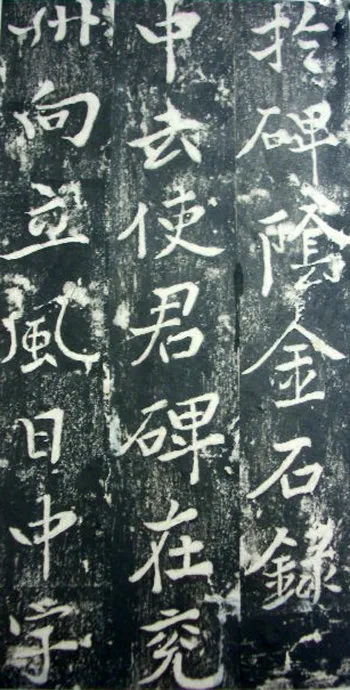 扵碑隂金石録
中去使君碑在兖
州向立風日中字